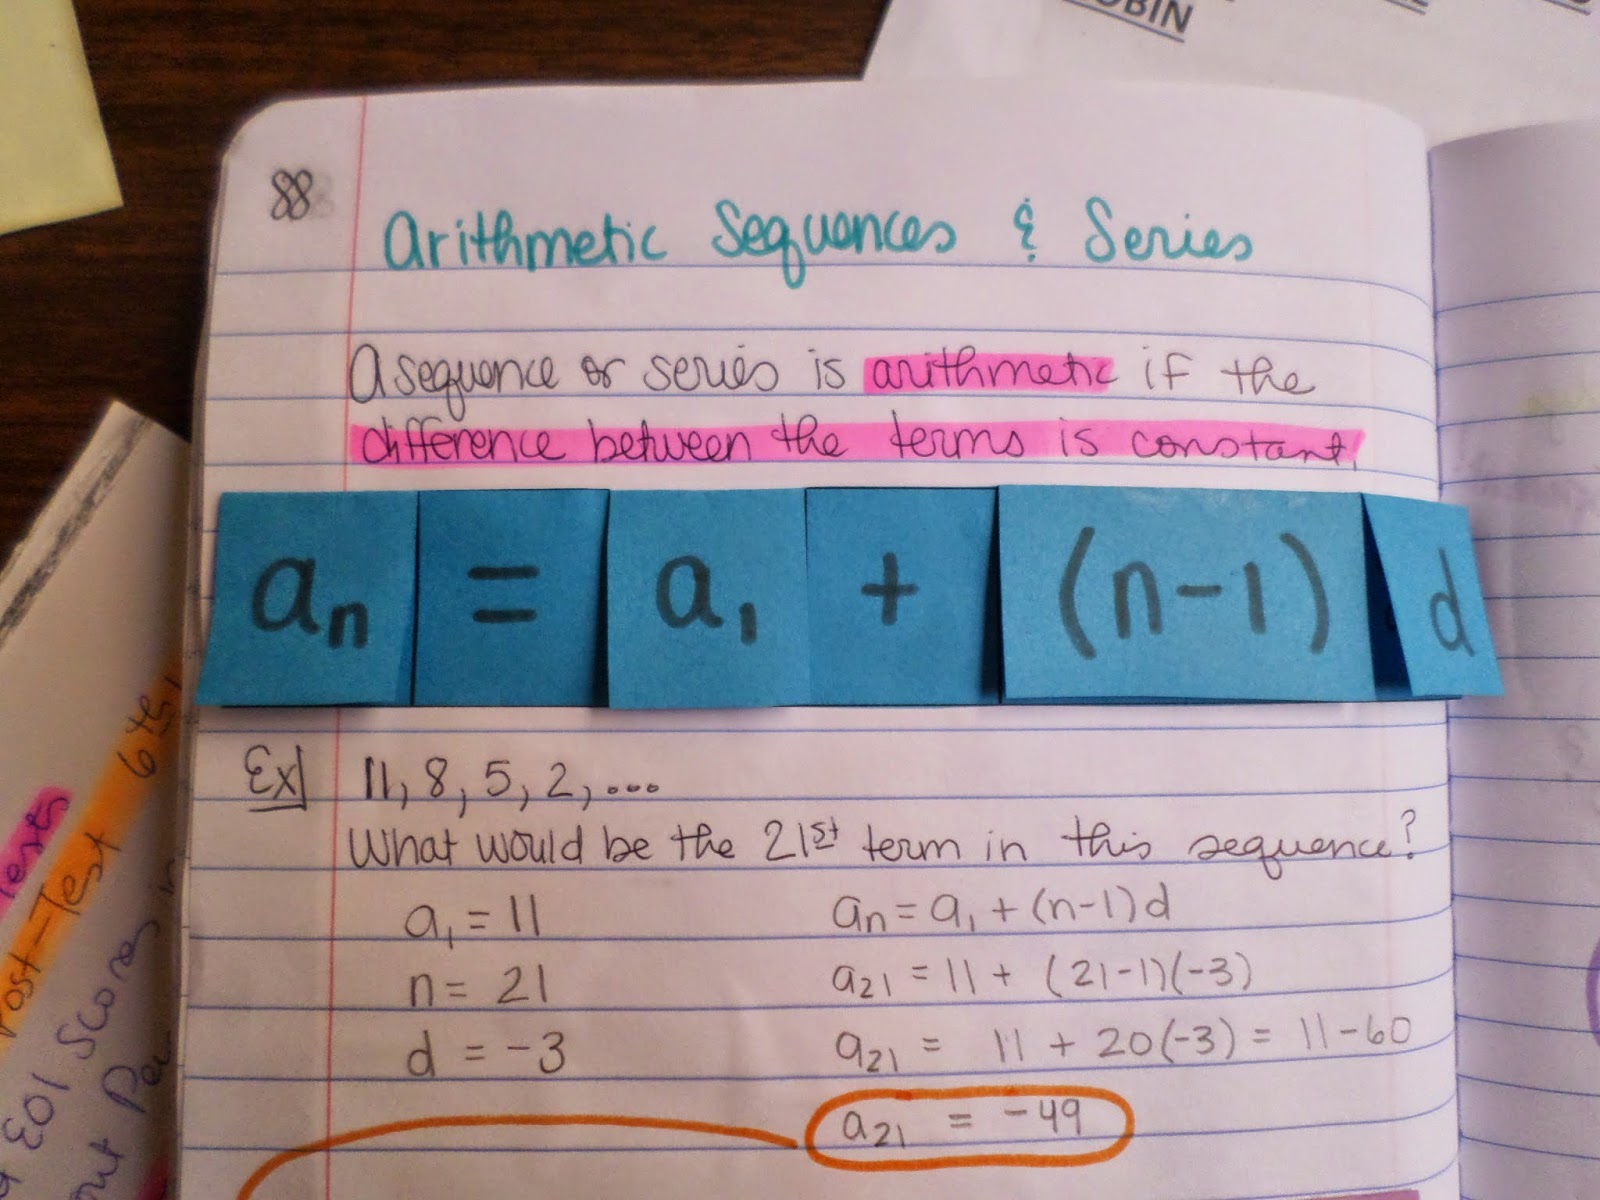 OBIN
88
Arithmetic Sequences & Series
A sequence or series is arithmetic if the
difference between the terms is constant.
aₙ = a₁ + (n-1) d
Ex 11, 8, 5, 2, ...
What would be the 21st term in this sequence?
a₁ = 11
n = 21
d = -3
aₙ = a₁ + (n-1)d
a₂₁ = 11 + (21-1)(-3)
a₂₁ = 11 + 20(-3) = 11-60
a₂₁ = -49
Tests
Post-Test 6th
EOI Scores in